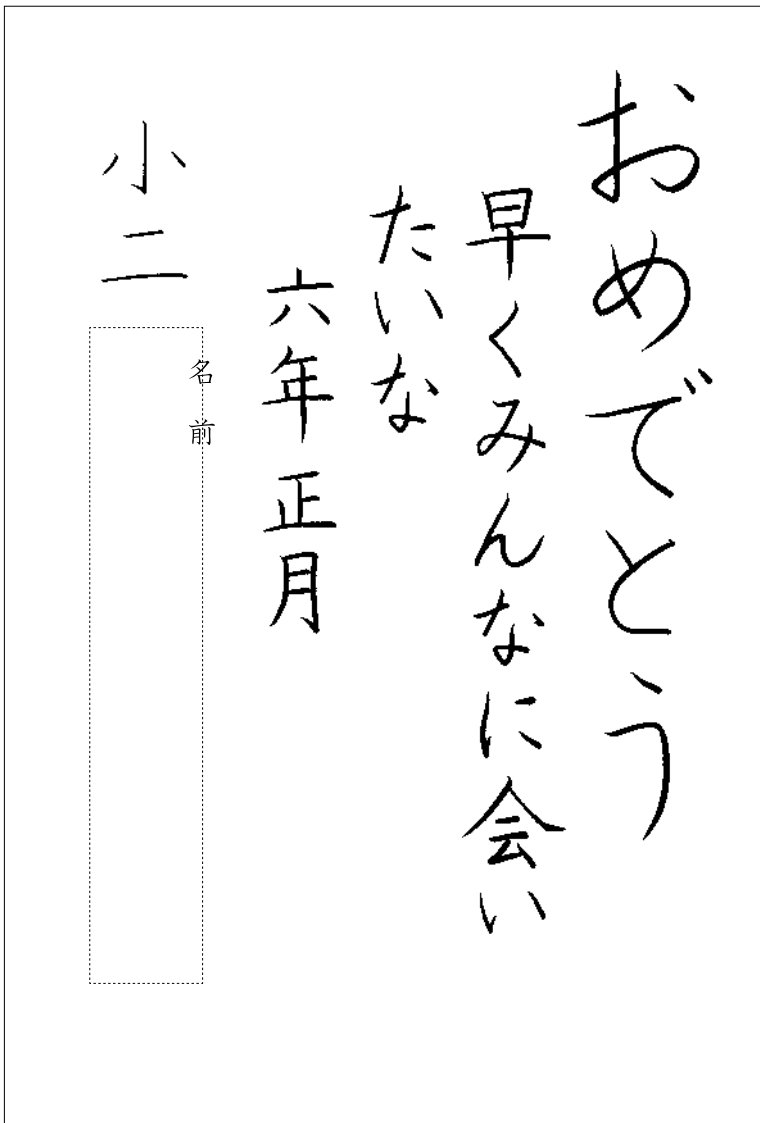 おめでとう
早くみんなに会い
たいな
六年正月
小二
名前